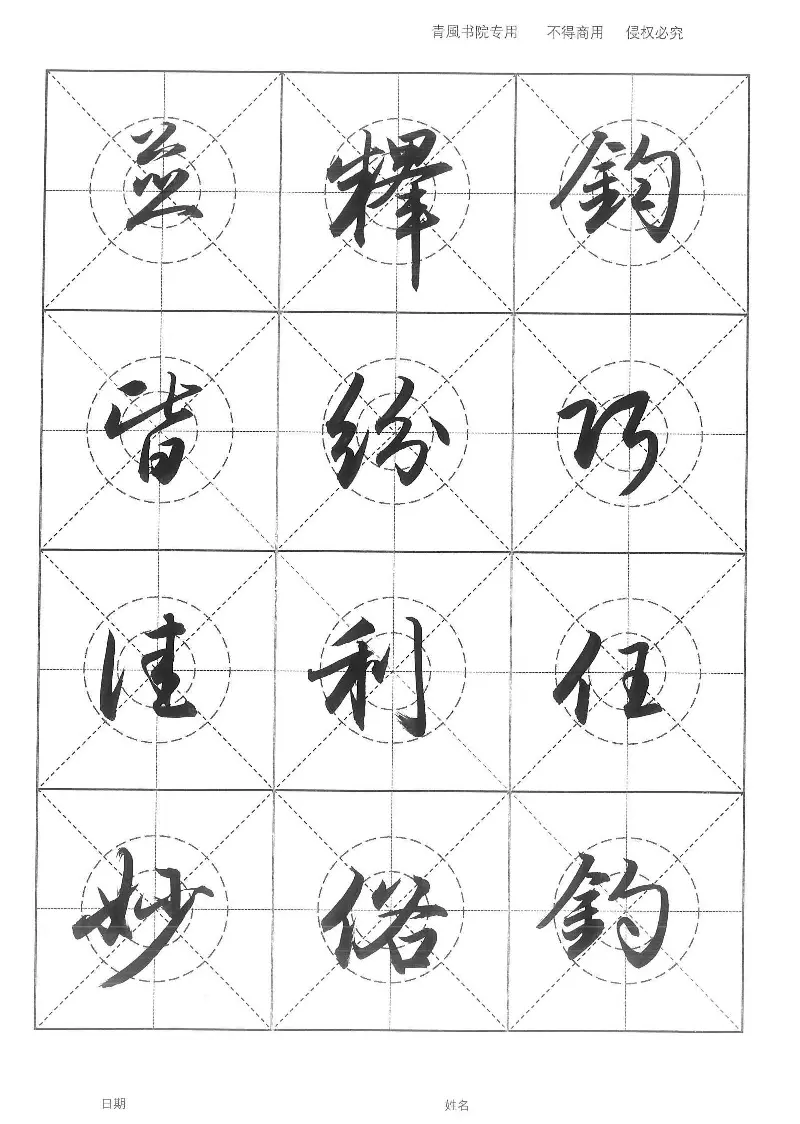 青風书院专用 不得商用 侵权必究
鈞巧任釣
釋紛利俗
並皆佳妙
日期 姓名